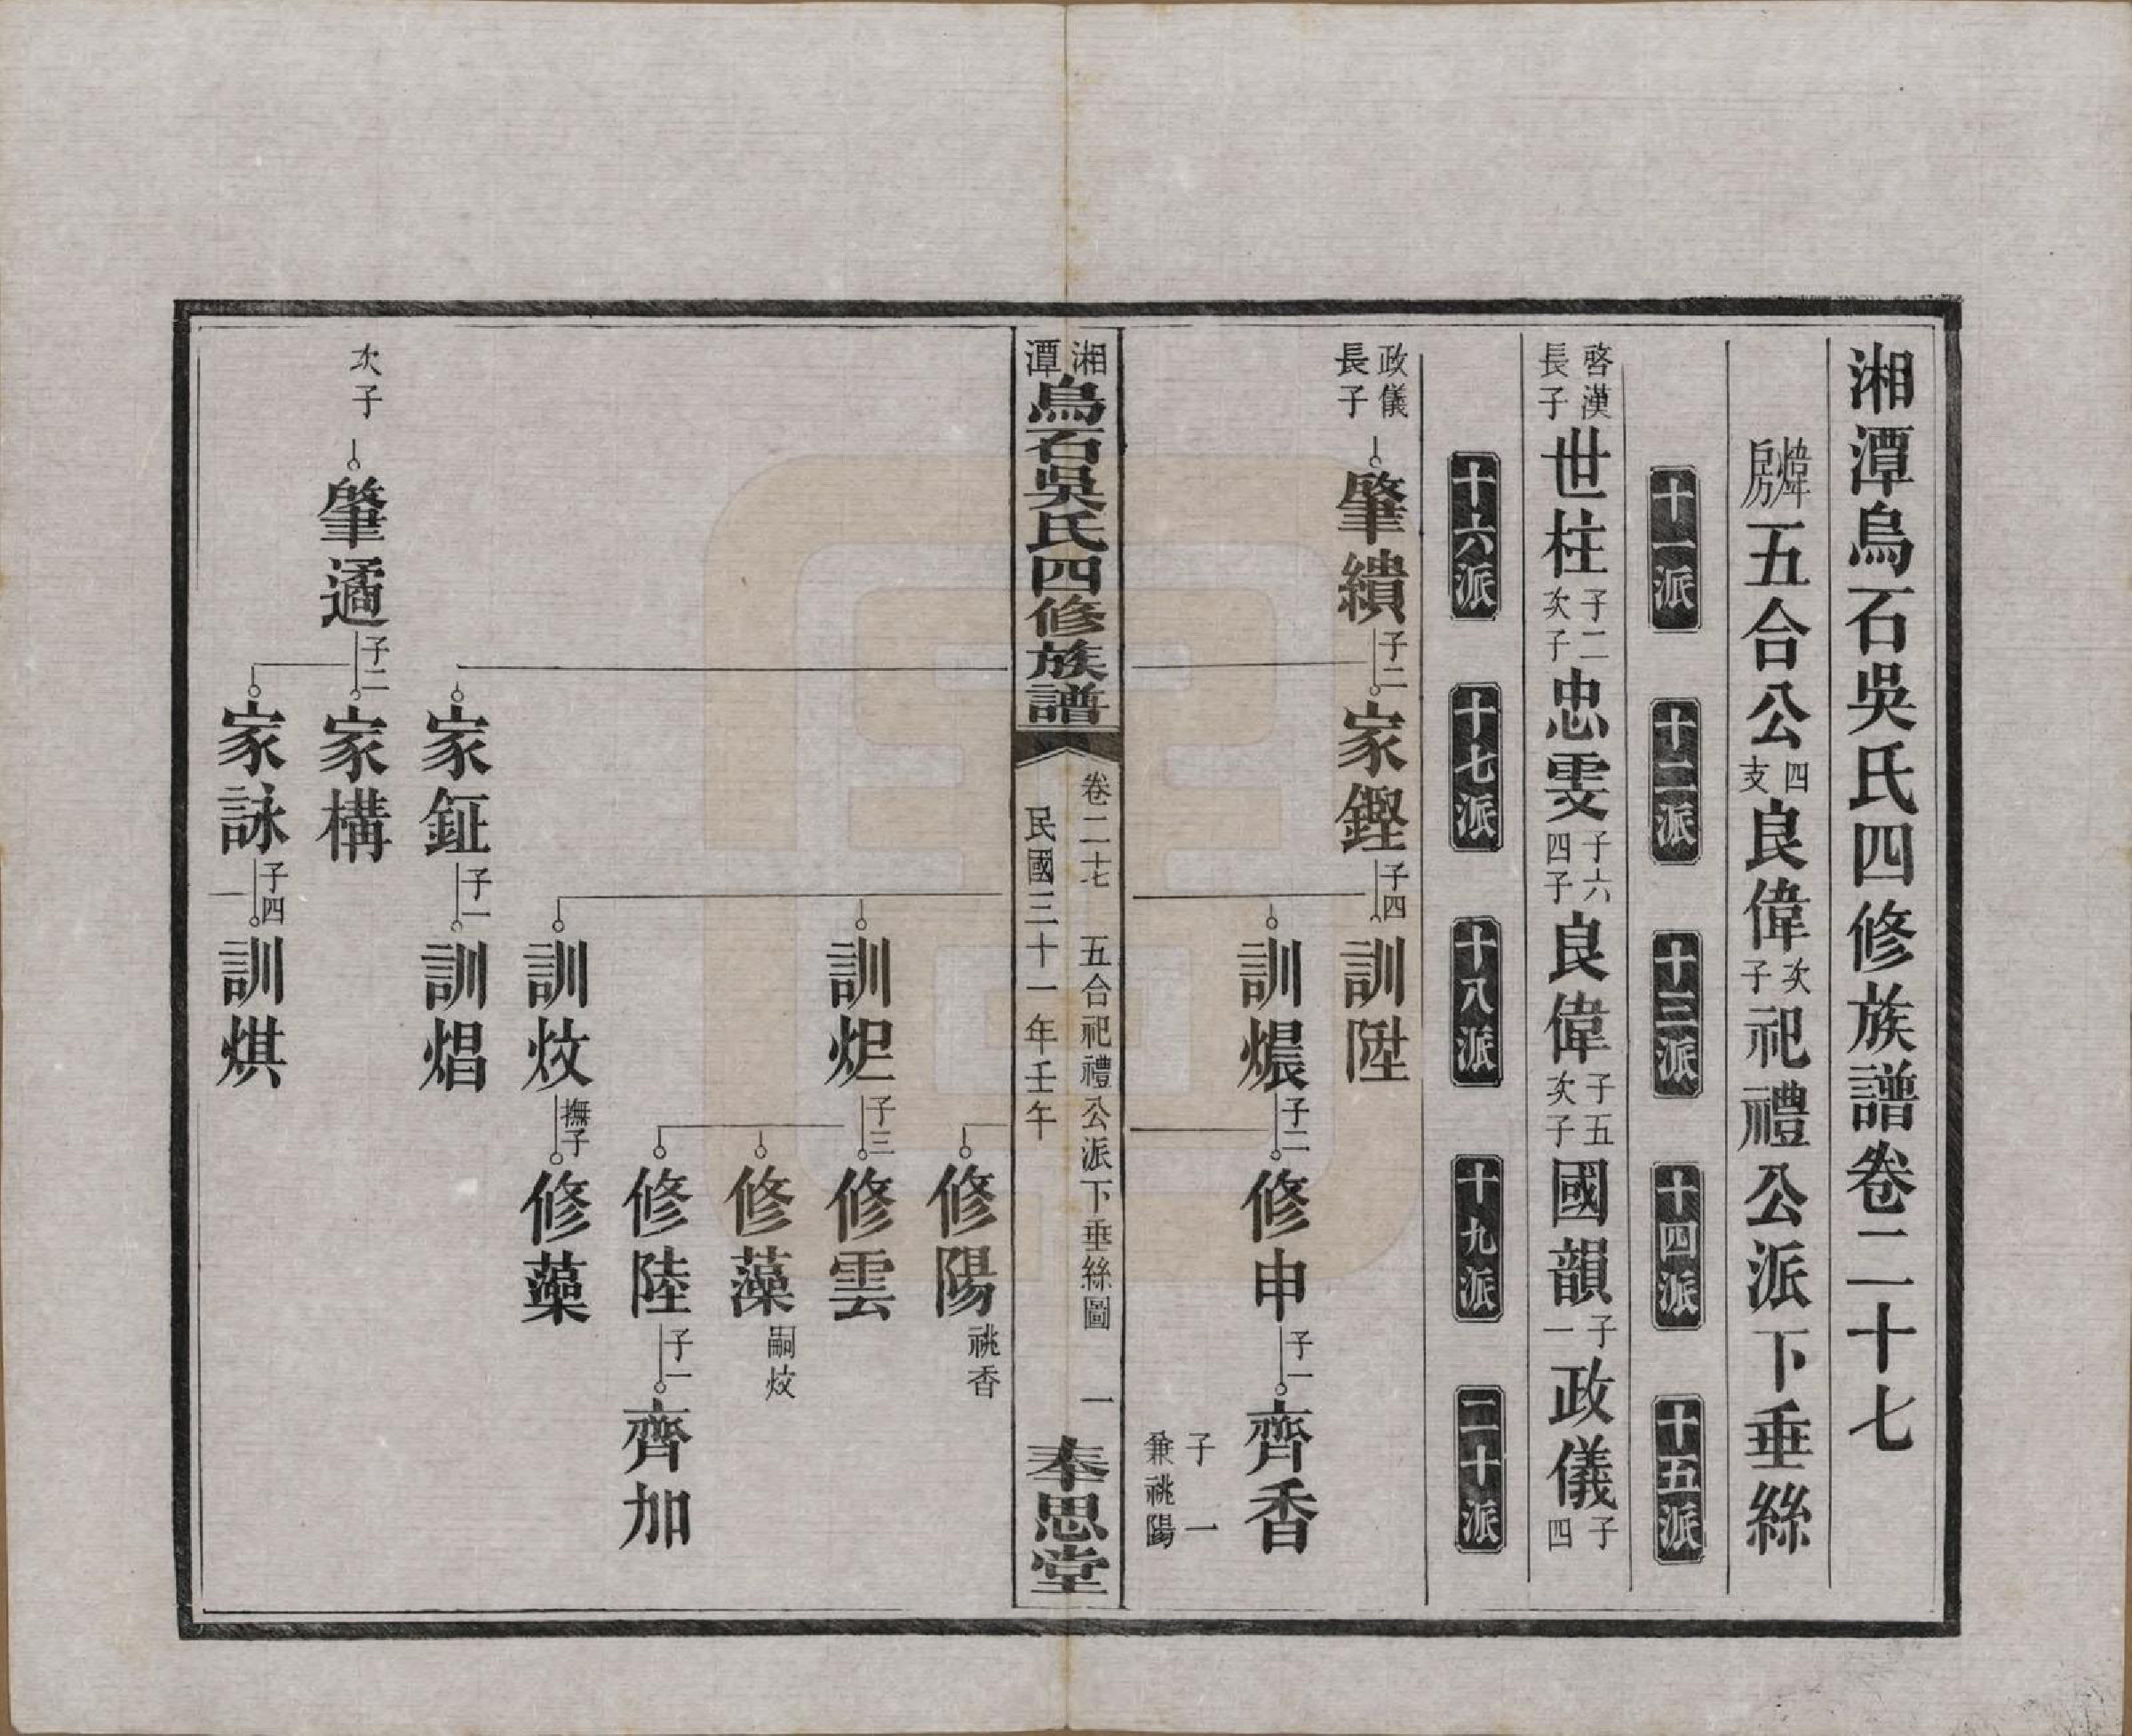 湘潭烏石吳氏四修族譜卷二十七
煒房五合公四支良偉次子祀禮公派下垂絲
十一派 十二派 十三派 十四派 十五派
啓漢長子世柱子二次子忠雯子六四子良偉子五次子國韻子一政儀子四
十六派 十七派 十八派 十九派 二十派
政儀長子肇績子二家鏗子四訓陞
訓㷳子二修申子一齊香子一兼祧陽
湘潭烏石吳氏四修族譜 卷二十七 五合祀禮公派下垂絲圖 一 民國三十一年壬午 奉思堂
修陽祧香
訓炟子三修雲
修藻嗣炆
修陸子一齊加
訓炆撫子修藻
家鉦子一訓焻
次子肇遹子二家構
家詠子四訓焜